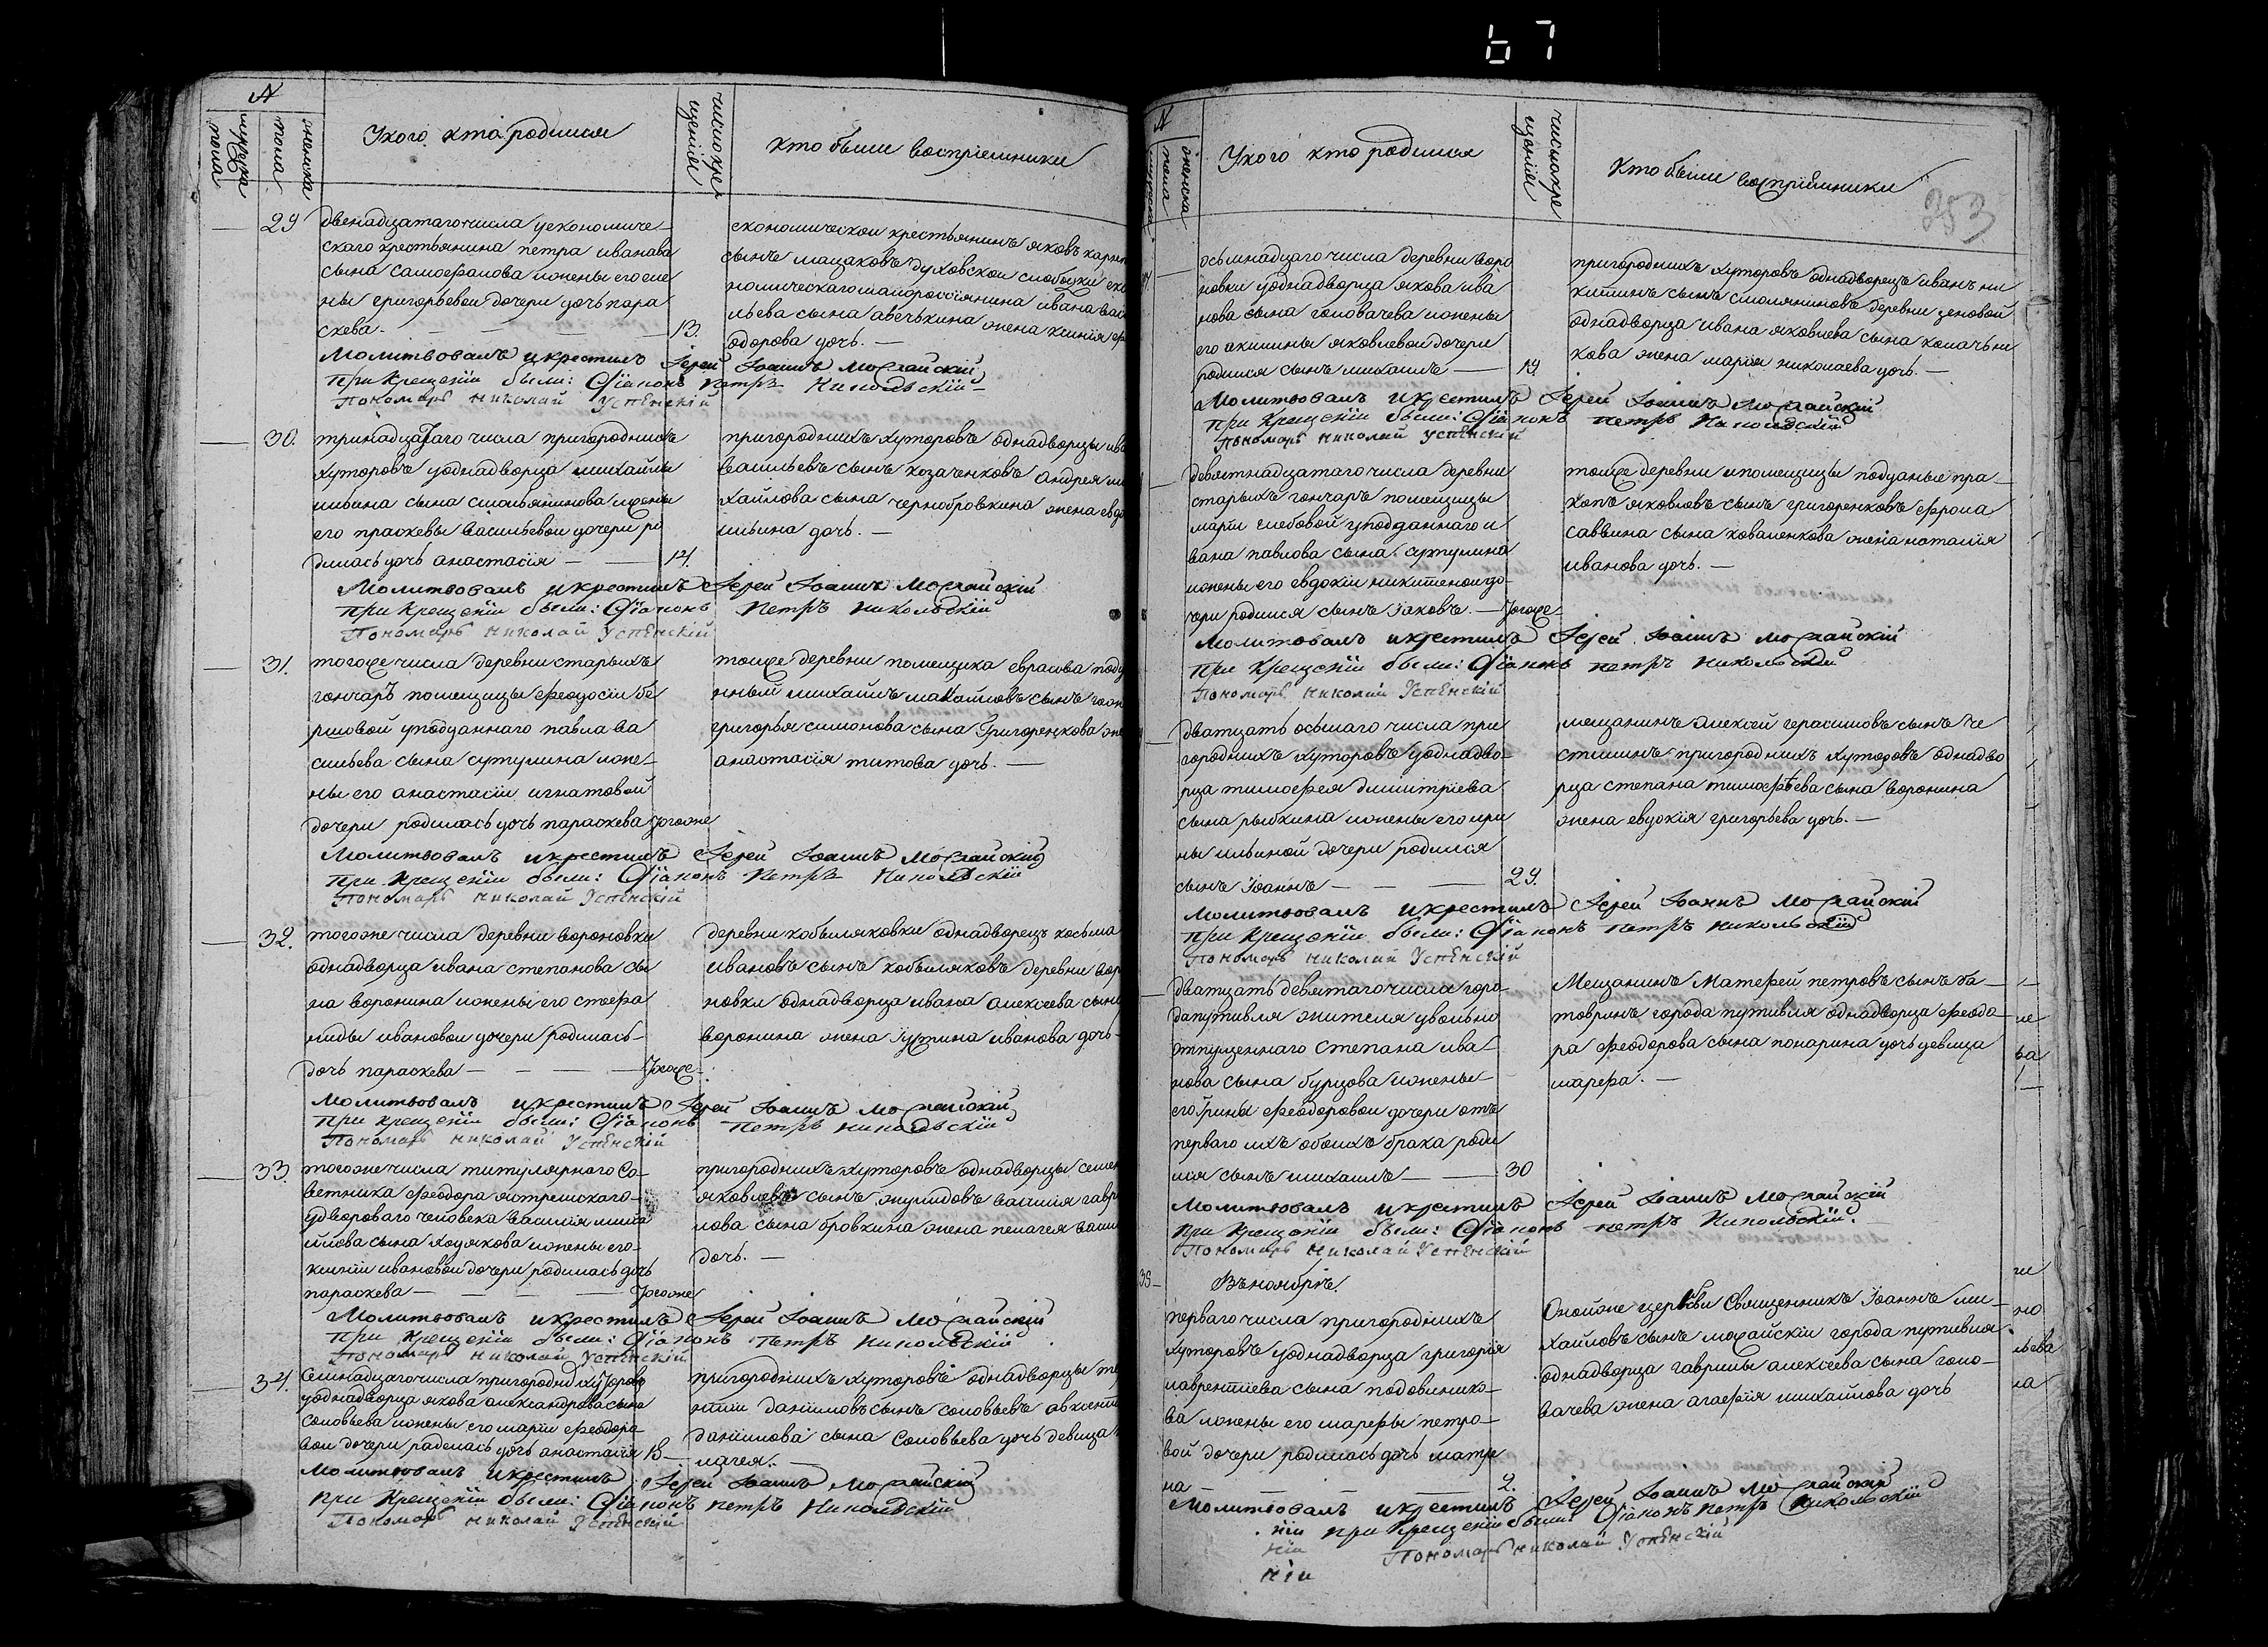 67
№
мужеска пола
женска пола
Укого кто родился
число крещенія
кто были воспріемники
29
двенадцатаго числа уекономиче-
скаго крестьянина петра иванава
сына самофалова ижены его еле
ны григорьевой дочери дочь пара
скева.
13.
економическои крестьянинъ яковъ
сынъ мацаковъ духовской слободки еко
номическаго малороссіянина ивана васи
льева сына авечькина жена ксинія
одорова дочь.
Молитвовалъ икрестилъ Іерей Іоаннъ Можайскій
При крещеніи были: Діаконъ Петръ Никольскій
Пономарь Николай Успѣнскій
30.
тринадцатаго числа пригородныхъ
хуторовъ уоднадворца михайлы
ильина сына смольянинова ижены
его праскевы васильевой дочери ро
дилась дочь анастасія
14.
пригородныхъ хуторовъ однадворцы ива
васильевъ сынъ козаченковъ андрея ми
хайлова сына чернобровкина жена евдо
ильина дочь.
Молитвовалъ икрестилъ Іерей Іоаннъ Можайскій
При крещеніи были: Діаконъ Петръ Никольскій
Пономарь Николай Успѣнскій
31.
тогоже числа деревни старыхъ
гончаръ помещицы феодосіи бе
ршовой уподданнаго павла ва
сильева сына сутулина иже-
ны его анастасіи игнатовой
дочери родилась дочь параскева
тогоже
тоиже деревни помещика подда
нный михаилъ сынъ
григорья симонова сына Григоренкова
анастасія титова дочь.
Молитвовалъ икрестилъ Іерей Іоаннъ Можайскій
При крещеніи были: Діаконъ Петръ Никольскій
Пономарь Николай Успѣнскій
32.
тогоже числа деревни вороновки
однадворца ивана степанова сы
на воронина ижены его стефа
ниды ивановои дочери родилась
дочь параскева
тогоже
деревни кобыляковки однадворецъ косьма
ивановъ сынъ кобыляковъ деревни вор
новки однадворца ивана алексеева сына
воронина жена іустина иванова дочь
Молитвовалъ икрестилъ Іерей Іоаннъ Можайскій
При крещеніи были: Діаконъ Петръ Никольскій
Пономарь Николай Успѣнскій
33.
тогоже числа титулярного Со-
ветника феодора ястремскаго
удвороваго человека василія миха
йлова сына ходякова ижены его
ксиніи ивановои дочери родилась дочь
параскева
тогоже
пригородныхъ хуторовъ однадворцы семен
яковлевъ сынъ жулидовъ василія гаври
лова сына бровкина жена пелагея васи
дочь.
Молитвовалъ икрестилъ Іерей Іоаннъ Можайскій
При крещеніи были: Діаконъ Петръ Никольскій
Пономарь Николай Успѣнскій
34.
Семнадцаго числа пригородных хуторов
уоднадворца якова александрова сына
Соловьева ижены его маріи феодоро
вои дочери радилась дочь анастасія
18
пригородныхъ хуторовъ однадворцы
даниловъ сынъ соловьевъ
данилова сына Соловьева дочь девица
лагея.
Молитвовалъ икрестилъ Іерей Іоаннъ Можайскій
при крещеніи были: Діаконъ Петръ Никольскій
Пономарь Николай Успѣнскій
№
женска пола
Укого кто родился
число крещенія
Кто были воспріемники
353
осьмнадцаго числа деревни воро
новки уоднадворца якова ива
нова сына головачева ижены
его акилины яковлевой дочери
родился сынъ михаилъ
19.
пригородныхъ хуторовъ однадворецъ иванъ ни
китинъ сынъ смоляниновъ деревни
однадворца ивана яковлева сына
кова жена марія николаева дочь.
Молитвовалъ икрестилъ Іерей Іоаннъ Можайскій
при крещеніи были: Діаконъ Петръ Никольскій
Пономарь Николай Успѣнскій
девятнадцатаго числа деревни
старыхъ гончаръ помещицы
маріи глебовой уподданнаго и
вана павлова сына сутулина
ижены его евдокіи никитеной до-
чери родился сынъ Іаковъ.
тогоже
тоиже деревни ипомещицы подданые пра-
яковлевъ сынъ григоренковъ фрола
саввина сына коваленкова жена наталія
иванова дочь.
Молитвовалъ икрестилъ Іерей Іоаннъ Можайскій
при крещеніи были: Діаконъ Петръ Никольскій
Пономарь Николай Успѣнскій
дватцать осьмаго числа при
городныхъ хуторовъ уоднадво-
рца тимофея димитріева
сына рыбкина ижены его ири
ны ильиной дочери родился
сынъ Іоаннъ
29.
мещанинъ Алексей герасимовъ сынъ че
стилинъ пригородныхъ хуторовъ однадво
рца степана тимофеева сына воронина
жена евдокія григорьева дочь.
Молитвовалъ икрестилъ Іерей Іоаннъ Можайскій
при крещеніи были: Діаконъ Петръ Никольскій
Пономарь Николай Успѣнскій
дватцать девятаго числа горо-
да путивля жителя увольно
отпущеннаго Степана ива-
нова сына бурцова ижены
его Ірины феодоровои дочери отъ
перваго ихъ обоихъ брака роди
лся сынъ михаилъ
30
Мещанинъ Матефей петровъ сынъ ба-
товринъ города путивля однадворца феодо-
ра феодорова сына понарина дочь девица
марфа.
Молитвовалъ икрестилъ Іерей Іоаннъ Можайскій
при крещеніи были: Діаконъ Петръ Никольскій.
Пономарь Николай Успѣнскій
35
Въноябрѣ.
перваго числа пригородныхъ
хуторовъ уоднадворца григорія
лаврентіева сына подовинико-
ва ижены его марфы петро-
вой дочери родилась дочь матре
на
2.
Оноиже церькви Священникъ Іоаннъ ми-
хайловъ сынъ можайскіи города путивля
однадворца гаврилы алексеева сына голо-
вачева жена агафія михайлова дочь
Молитвовалъ икрестилъ Іерей Іоаннъ Можайскій
при крещеніи были: Діаконъ Петръ Никольскій
Пономарь Николай Успѣнскій